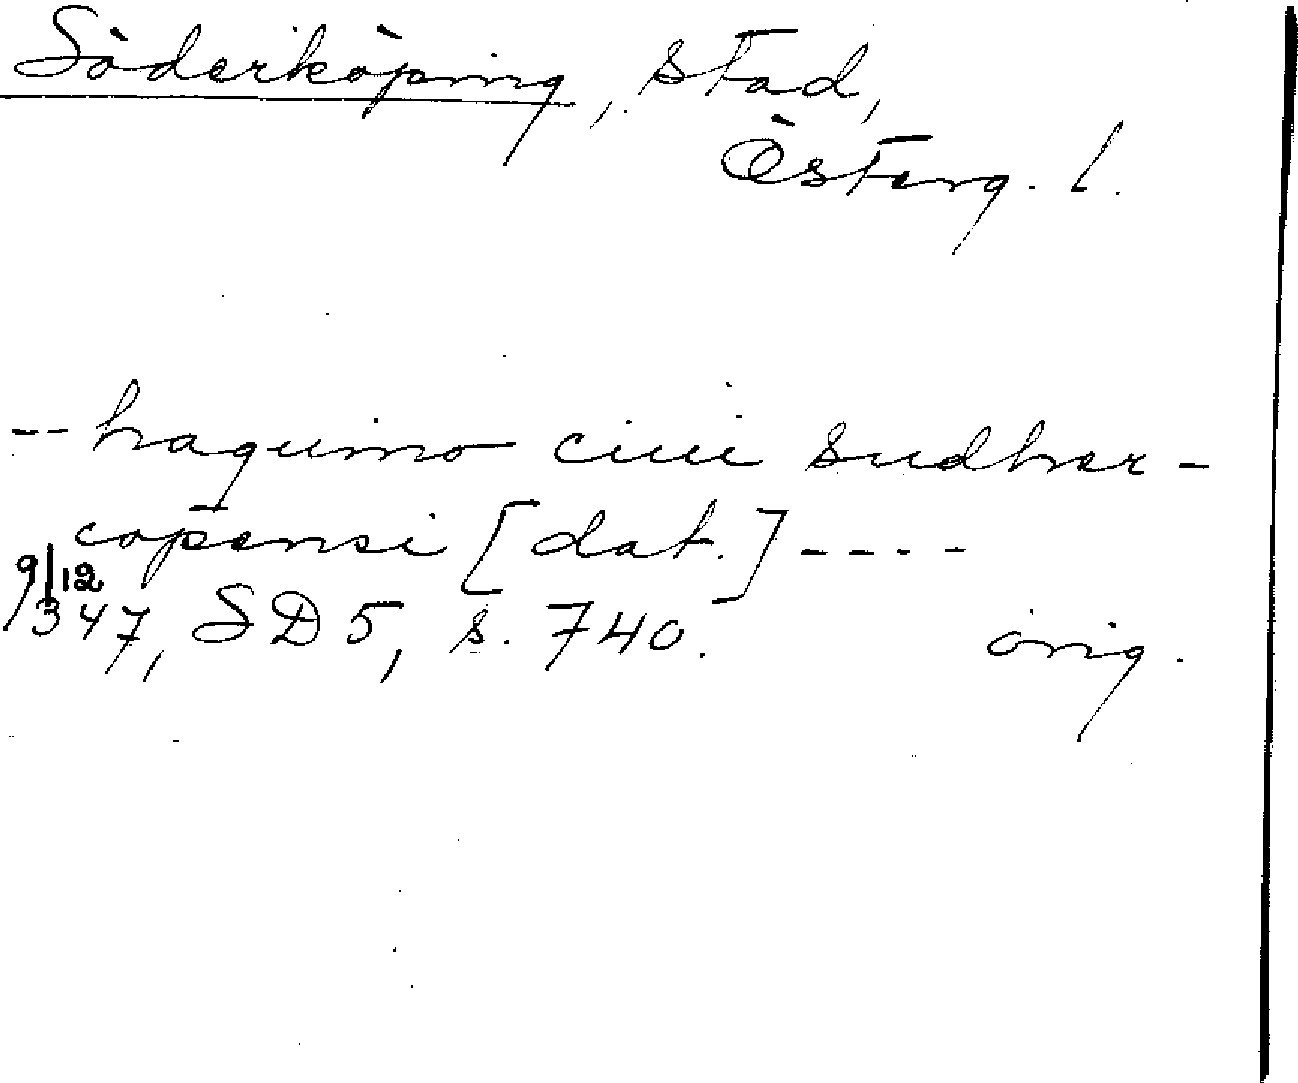 Söderköping, stad,
Österg. l.
-- haquino ciui sudher-
copensi [dat.] ----
9/12
1347, SD 5, s. 740. orig.